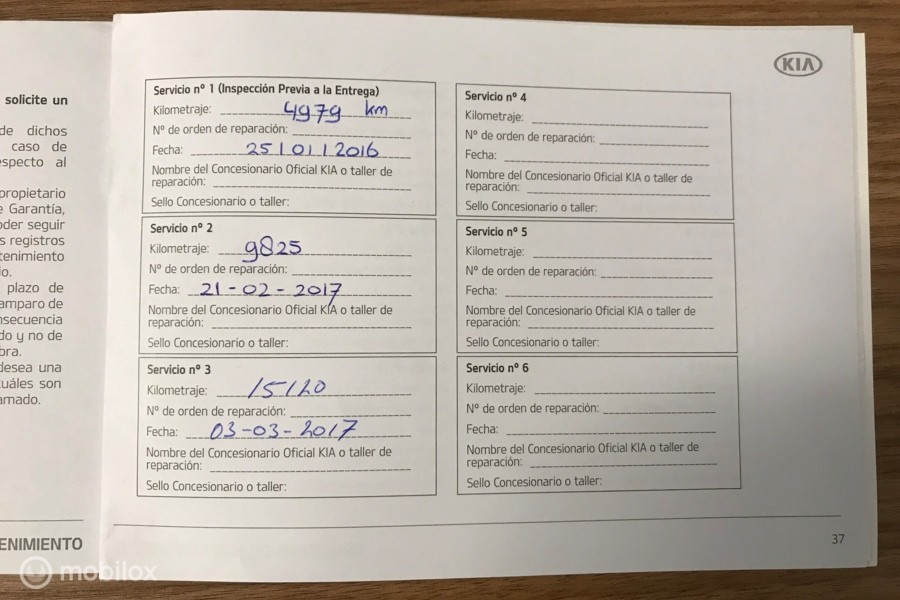 solicite un
de dichos
caso de
especto al
propietario
e Garantía,
oder seguir
s registros
tenimiento
io.
plazo de
amparo de
nsecuencia
do y no de
bra.
desea una
cuáles son
amado.
ENIMIENTO
KIA
Servicio nº 1 (Inspección Previa a la Entrega)
Kilometraje: 4979 km
Nº de orden de reparación:
Fecha: 25/01/2016
Nombre del Concesionario Oficial KIA o taller de
reparación:
Sello Concesionario o taller:
Servicio nº 2
Kilometraje: 9825
Nº de orden de reparación:
Fecha: 21-02-2017
Nombre del Concesionario Oficial KIA o taller de
reparación:
Sello Concesionario o taller:
Servicio nº 3
Kilometraje: 15120
Nº de orden de reparación:
Fecha: 03-03-2017
Nombre del Concesionario Oficial KIA o taller de
reparación:
Sello Concesionario o taller:
Servicio nº 4
Kilometraje:
Nº de orden de reparación:
Fecha:
Nombre del Concesionario Oficial KIA o taller de
reparación:
Sello Concesionario o taller:
Servicio nº 5
Kilometraje:
Nº de orden de reparación:
Fecha:
Nombre del Concesionario Oficial KIA o taller de
reparación:
Sello Concesionario o taller:
Servicio nº 6
Kilometraje:
Nº de orden de reparación:
Fecha:
Nombre del Concesionario Oficial KIA o taller de
reparación:
Sello Concesionario o taller:
37
mobilox